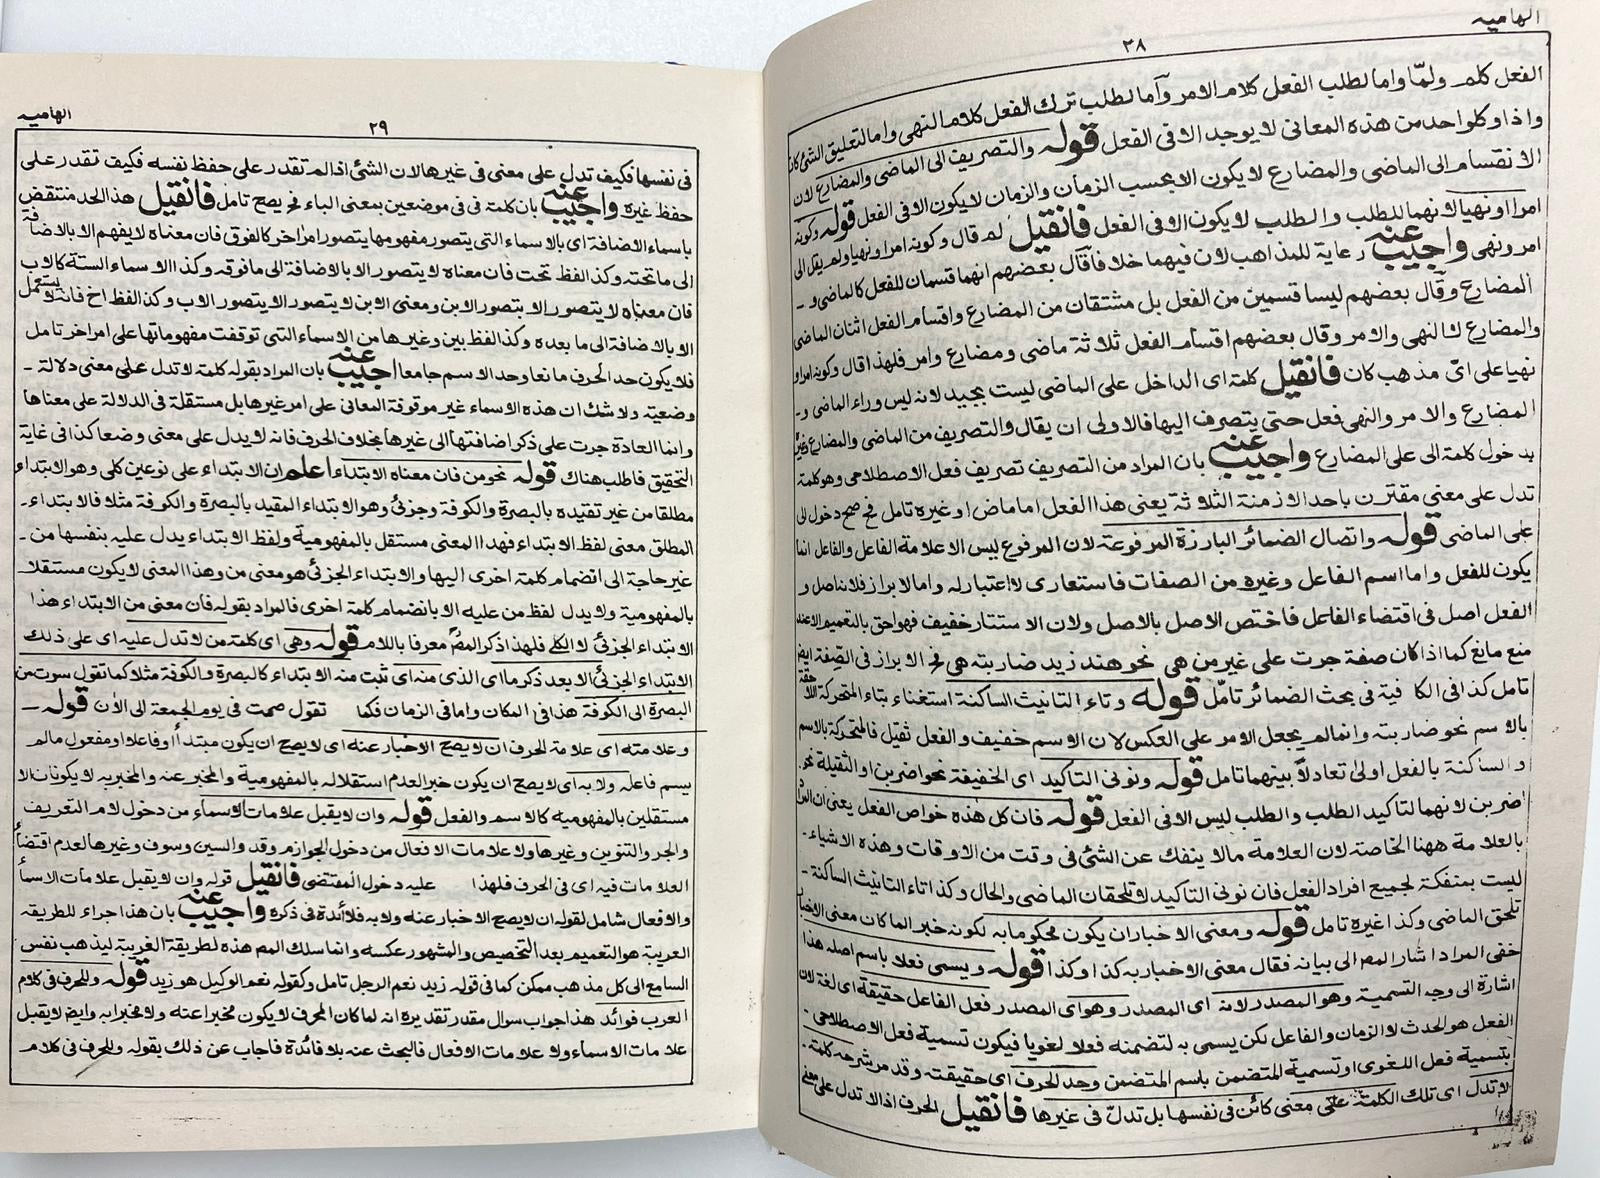 الهاميه
٢٨
الفعل كلم ولمّا واما لطلب الفعل كلام الامر وآما لطلب ترك الفعل كلام النهى واما لتعليق الشئ كان
واذا وكلواحد من هذه المعانى لا يوجد الا فى الفعل قوله والتصريف الى الماضى والمضارع لان
الانقسام الى الماضى والمضارع لا يكون الا بحسب الزمان والزمان لا يكون الا فى الفعل قوله وكونه
امرا او نهيا لانهما للطلب والطلب لا يكون الا فى الفعل فانقيل لم قال وكونه امرا ونهيا ولم يقل الى
امر ونهى واجيب عنه رعاية للمذاهب لان فيهما خلافا قال بعضهم انهما قسمان للفعل كالماضى و
المضارع وقال بعضهم ليسا قسمين من الفعل بل مشتقان من المضارع واقسام الفعل اثنان الماضى
والمضارع لا النهى والامر وقال بعضهم اقسام الفعل ثلاثة ماضى ومضارع وامر فلهذا قال وكونه امرا و
نهيا على اىّ مذهب كان فانقيل كلمة اى الداخل على الماضى ليست بجيد لانه ليس وراء الماضى و
المضارع والامر والنهى فعل حتى يتصرف اليها فالاولى ان يقال والتصريف من الماضى والمضارع
بدخول كلمة الى على المضارع واجيب عنه بان المراد من التصريف تصريف فعل الاصطلاحى وهو كلمة
تدل على معنى مقترن باحد الازمنة الثلاثة يعنى هذا الفعل اما ماض او غيره تامل فح صح دخول الى
على الماضى قوله واتصال الضمائر البارزة المرفوعة لان المرفوع ليس الا علامة الفاعل والفاعل انما
يكون للفعل واما اسم الفاعل وغيره من الصفات فاستعارى لا اعتبار له واما لابراز فلانه اصل و
الفعل اصل فى اقتضاء الفاعل فاختص الاصل بالاصل ولان الاستتار خفيف فهو احق بالتعميم الا عند
منع مانع كما اذا كان صفة جرت على غير من هى نحو هند زيد ضاربته هى فح الابراز فى الصفة ايض
تامل كذا فى الكافية فى بحث الضمائر تامّل قوله وتاء التانيث الساكنة استغناء بتاء المتحركة اللاحقة
بالاسم نحو ضاربته وانما لم يجعل الامر على العكس لان الاسم خفيف والفعل ثقيل فالمتحركة بالاسم
والساكنة بالفعل اولىٰ تعادلاً بينهما تامل قوله ونونى التاكيد اى الخفيفة نحو اضربن او الثقيلة نحو
اضربن لانهما لتاكيد الطلب والطلب ليس الا فى الفعل قوله فان كل هذه خواص الفعل يعنى ان المراد
بالعلامة ههنا الخاصة لان العلامة ما لا ينفك عن الشئ فى وقت من الاوقات وهذه الاشياء
ليست بمنفكة لجميع افراد الفعل فان نونى التاكيد لا تلحقان الماضى والحال وكذا تاء التانيث الساكنة
تلحق الماضى وكذا غيره تامل قوله ومعنى الاخباران يكون محكوما به لكونه خبر الما كان معنى الاخبار
خفى المراد اشار المص الى بيانه فقال معنى الاخبار به كذا وكذا قوله ويسمى فعلا باسم اصله هذا
اشارة الى وجه التسمية وهو المصدر لانه اى المصدر وهو اى المصدر فعل الفاعل حقيقة اى لغة لان
الفعل هو الحدث لا الزمان والفاعل لكن يسمى به لتضمنه فعلا لغويا فيكون تسمية فعل الاصطلاحى
بتسمية فعل اللغوى او تسمية المتضمن باسم المتضمن وحد الحرف اى حقيقته وقد مر شرحه كلمة
لا تدل اى تلك الكلمة على معنى كائن فى نفسها بل تدلّ فى غيرها فانقيل الحرف اذا لا تدل على معنى
الهاميه
٢٩
فى نفسها فكيف تدل على معنى فى غيرها لان الشئ اذا لم تقدر على حفظ نفسه فكيف تقدر على
حفظ غيره واجيب عنه بان كلمة فى فى موضعين بمعنى الباء فح يصح تامل فانقيل هذا الحد منتقض
باسماء الاضافة اى بالاسماء التى يتصور مفهومها يتصور امر اخر كالفوق فان معناه لا يفهم الا بالاضافة
الى ما تحته وكذا لفظ تحت فان معناه لا يتصور الا بالاضافة الى ما فوقه وكذا الاسماء الستة كالاب
فان معناه لا يتصور الا بتصور الابن ومعنى الابن لا يتصور الا يتصور الاب وكذا لفظ اخ فانه لا يستعمل
الا بالاضافة الى ما بعده وكذا لفظ بين وغيرها من الاسماء التى توقفت مفهوماتها على امر اخر تامل
فلا يكون حد الحرف مانعا وحد الاسم جامعا اجيب عنه بان المراد بقوله كلمة لا تدل على معنى دلالة
وضعية ولا شك ان هذه الاسماء غير موقوفة المعانى على امر غيرها بل مستقلة فى الدلالة على معناها
وانما العادة جرت على ذكر اضافتها الى غيرها بخلاف الحرف فانه لا يدل على معنى وضعا كذا فى غاية
التحقيق فاطلب هناك قوله نحو من فان معناه الابتداء اعلم ان الابتداء على نوعين كلى وهو الابتداء
مطلقا من غير تقيده بالبصرة والكوفة وجزئى وهو الابتداء المقيد بالبصرة والكوفة مثلا فالابتداء
المطلق معنى لفظ الابتداء فهذا المعنى مستقل بالمفهومية ولفظ الابتداء يدل عليه بنفسها من
غير حاجة الى انضمام كلمة اخرى اليها والابتداء الجزئى هو معنى من وهذا المعنى لا يكون مستقلا
بالمفهومية ولا يدل لفظ من عليه الا بانضمام كلمة اخرى فالمراد بقوله فان معنى من الابتداء هذا
الابتداء الجزئى لا الكلى فلهذا ذكر المص معرفا باللام قوله وهى اى كلمة من لا تدل عليه اى على ذلك
الابتداء الجزئى الا بعد ذكر ما اى الذى منه اى ثبت منه الابتداء كالبصرة والكوفة مثلا كما تقول سرت من
البصرة الى الكوفة هذا فى المكان واما فى الزمان فكما تقول صمت فى يوم الجمعة الى الأن قوله
وعلامته اى علامة الحرف ان لا يصح الاخبار عنه اى لا يصح ان يكون مبتدأ او فاعلا او مفعول مالم
يسم فاعله ولا به اى لا يصح ان يكون خبر العدم استقلاله بالمفهومية والمخبر عنه والمخبر به لا يكونان الا
مستقلين بالمفهومية كالاسم والفعل قوله وان لا يقبل علامات الاسماء من دخول لام التعريف
والجر والتنوين وغيرها ولا علامات الافعال من دخول الجوازم وقد والسين وسوف وغيرها لعدم اقتضاء
العلامات فيه اى فى الحرف فلهذا عليه دخول المقتضى فانقيل قوله وان لا يقبل علامات الاسماء
والافعال شامل لقوله ان لا يصح الاخبار عنه ولا به فلا ئدة فى ذكره واجيب عنه بان هذا اجراء للطريقه
العربية هو التعميم بعد التخصيص والمشهور عكسه وانما سلك المص هذه لطريقة الغريبة ليذهب نفس
السامع الى كل مذهب ممكن كما فى قوله زيد نعم الرجل تامل وكقوله نعم الوكيل هو زيد قوله وللحرف فى كلام
العرب فوائد هذا جواب سوال مقدر تقديره انه لما كان المحرف لا يكون مخبرا عنه ولا مخبرا به وايض لا يقبل
علامات الاسماء ولا علامات الافعال فالبحث عنه بلا فائدة فاجاب عن ذلك بقوله وللحرف فى كلام